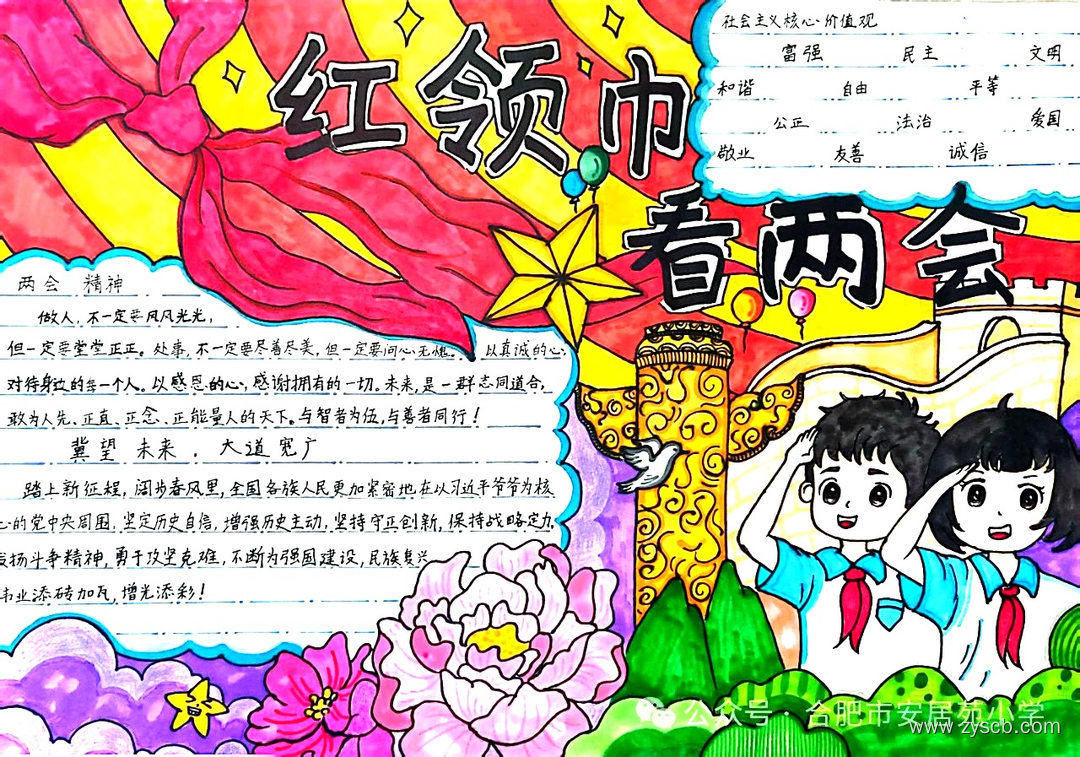 红领巾
看两会
社会主义核心价值观
富强 民主 文明
和谐 自由 平等
公正 法治 爱国
敬业 友善 诚信
两会 精神
做人,不一定要风风光光,
但一定要堂堂正正。处事,不一定要尽善尽美,但一定要问心无愧。以真诚的心,
对待身边的每一个人。以感恩的心,感谢拥有的一切。未来,是一群志同道合,
敢为人先、正直、正念、正能量人的天下。与智者为伍,与善者同行!
冀望未来,大道宽广
踏上新征程,阔步春风里,全国各族人民更加紧密地在以习近平爷爷为核
心的党中央周围,坚定历史自信,增强历史主动,坚持守正创新,保持战略定力,
发扬斗争精神,勇于攻坚克难,不断为强国建设,民族复兴
伟业添砖加瓦,增光添彩!
公众号·合肥市安居苑小学
www.zyscb.com